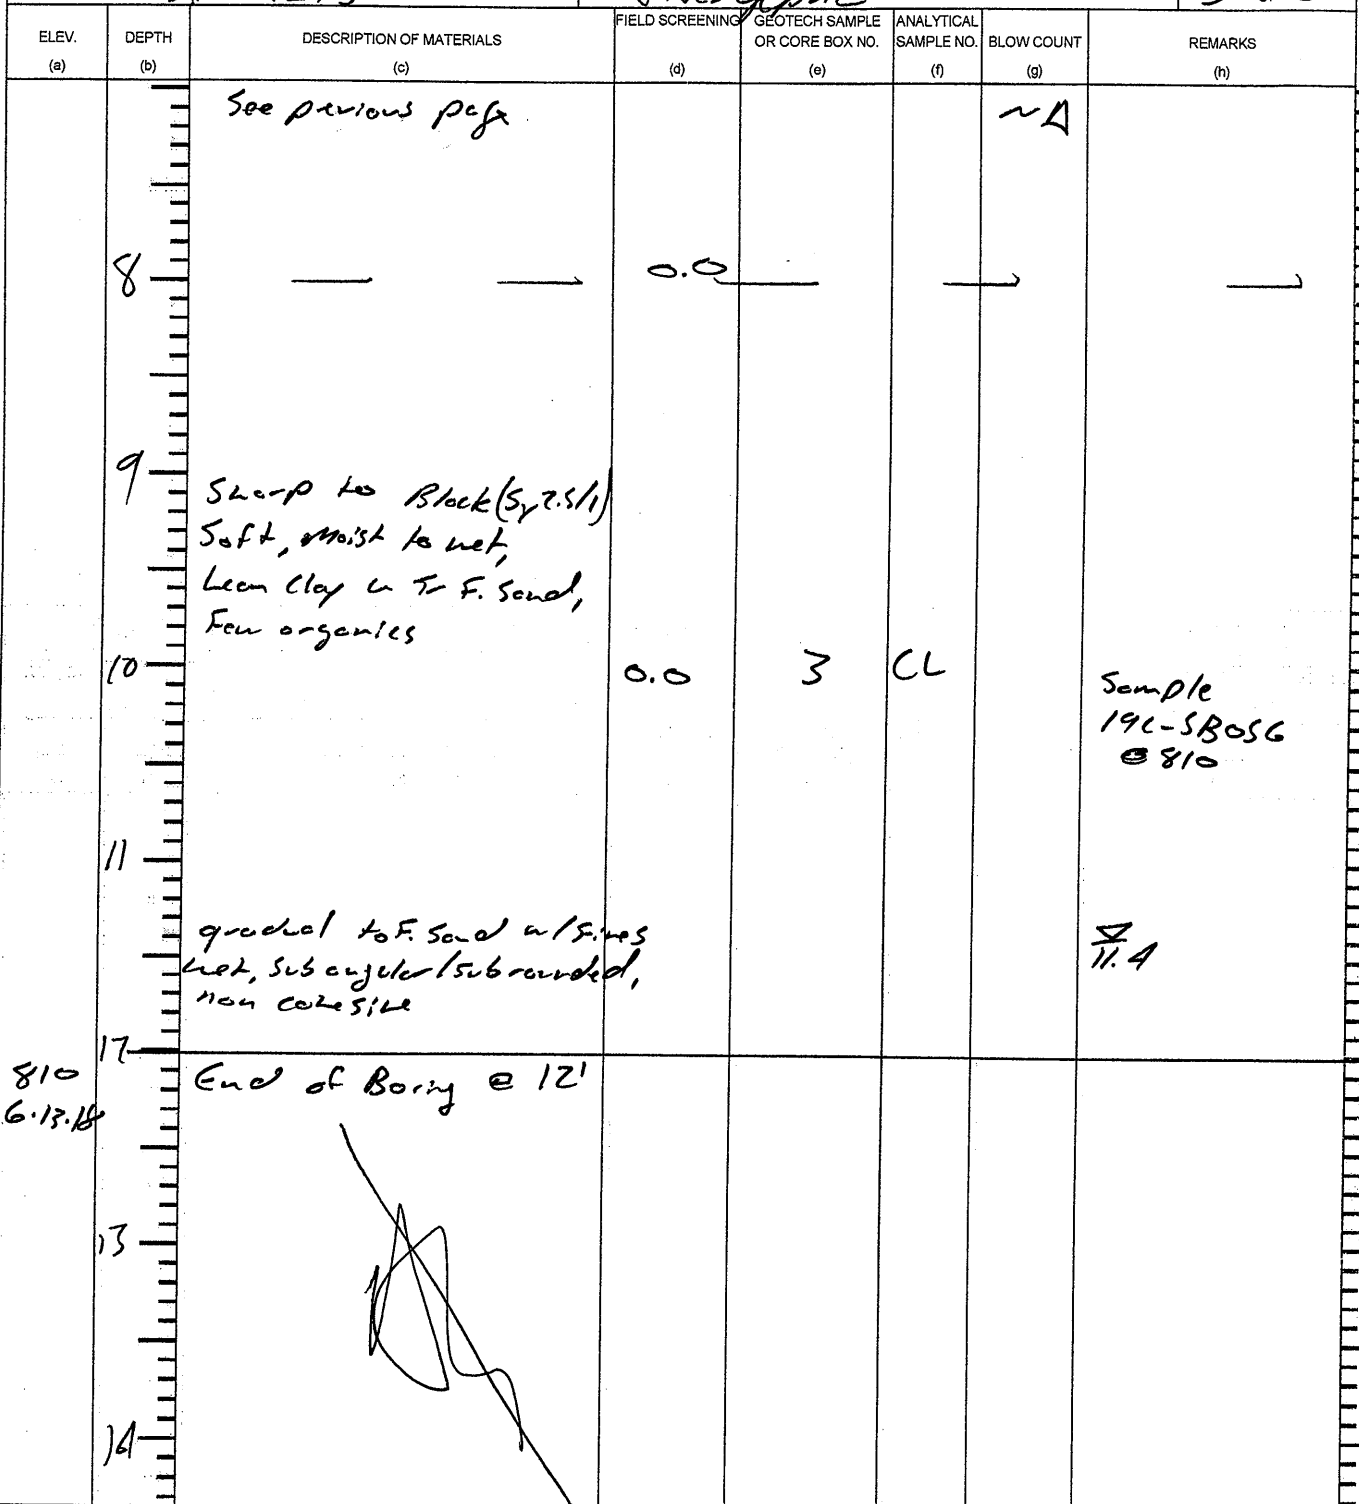 ELEV. DEPTH DESCRIPTION OF MATERIALS FIELD SCREENING GEOTECH SAMPLE OR CORE BOX NO. ANALYTICAL SAMPLE NO. BLOW COUNT REMARKS
(a) (b) (c) (d) (e) (f) (g) (h)
See previous page NA
8 0.0
9
Sharp to Black (5y 2.5/1)
Soft, moist to wet,
Lean Clay w Tr F. Sand,
Few organics
10 0.0 3 CL
Sample
19C-SB05G
@ 810
11
gradual to F. Sand w/ Fines
wet, subangular/subrounded,
non cohesive
11.4
12
810
6.13.18
End of Boring @ 12'
13
14